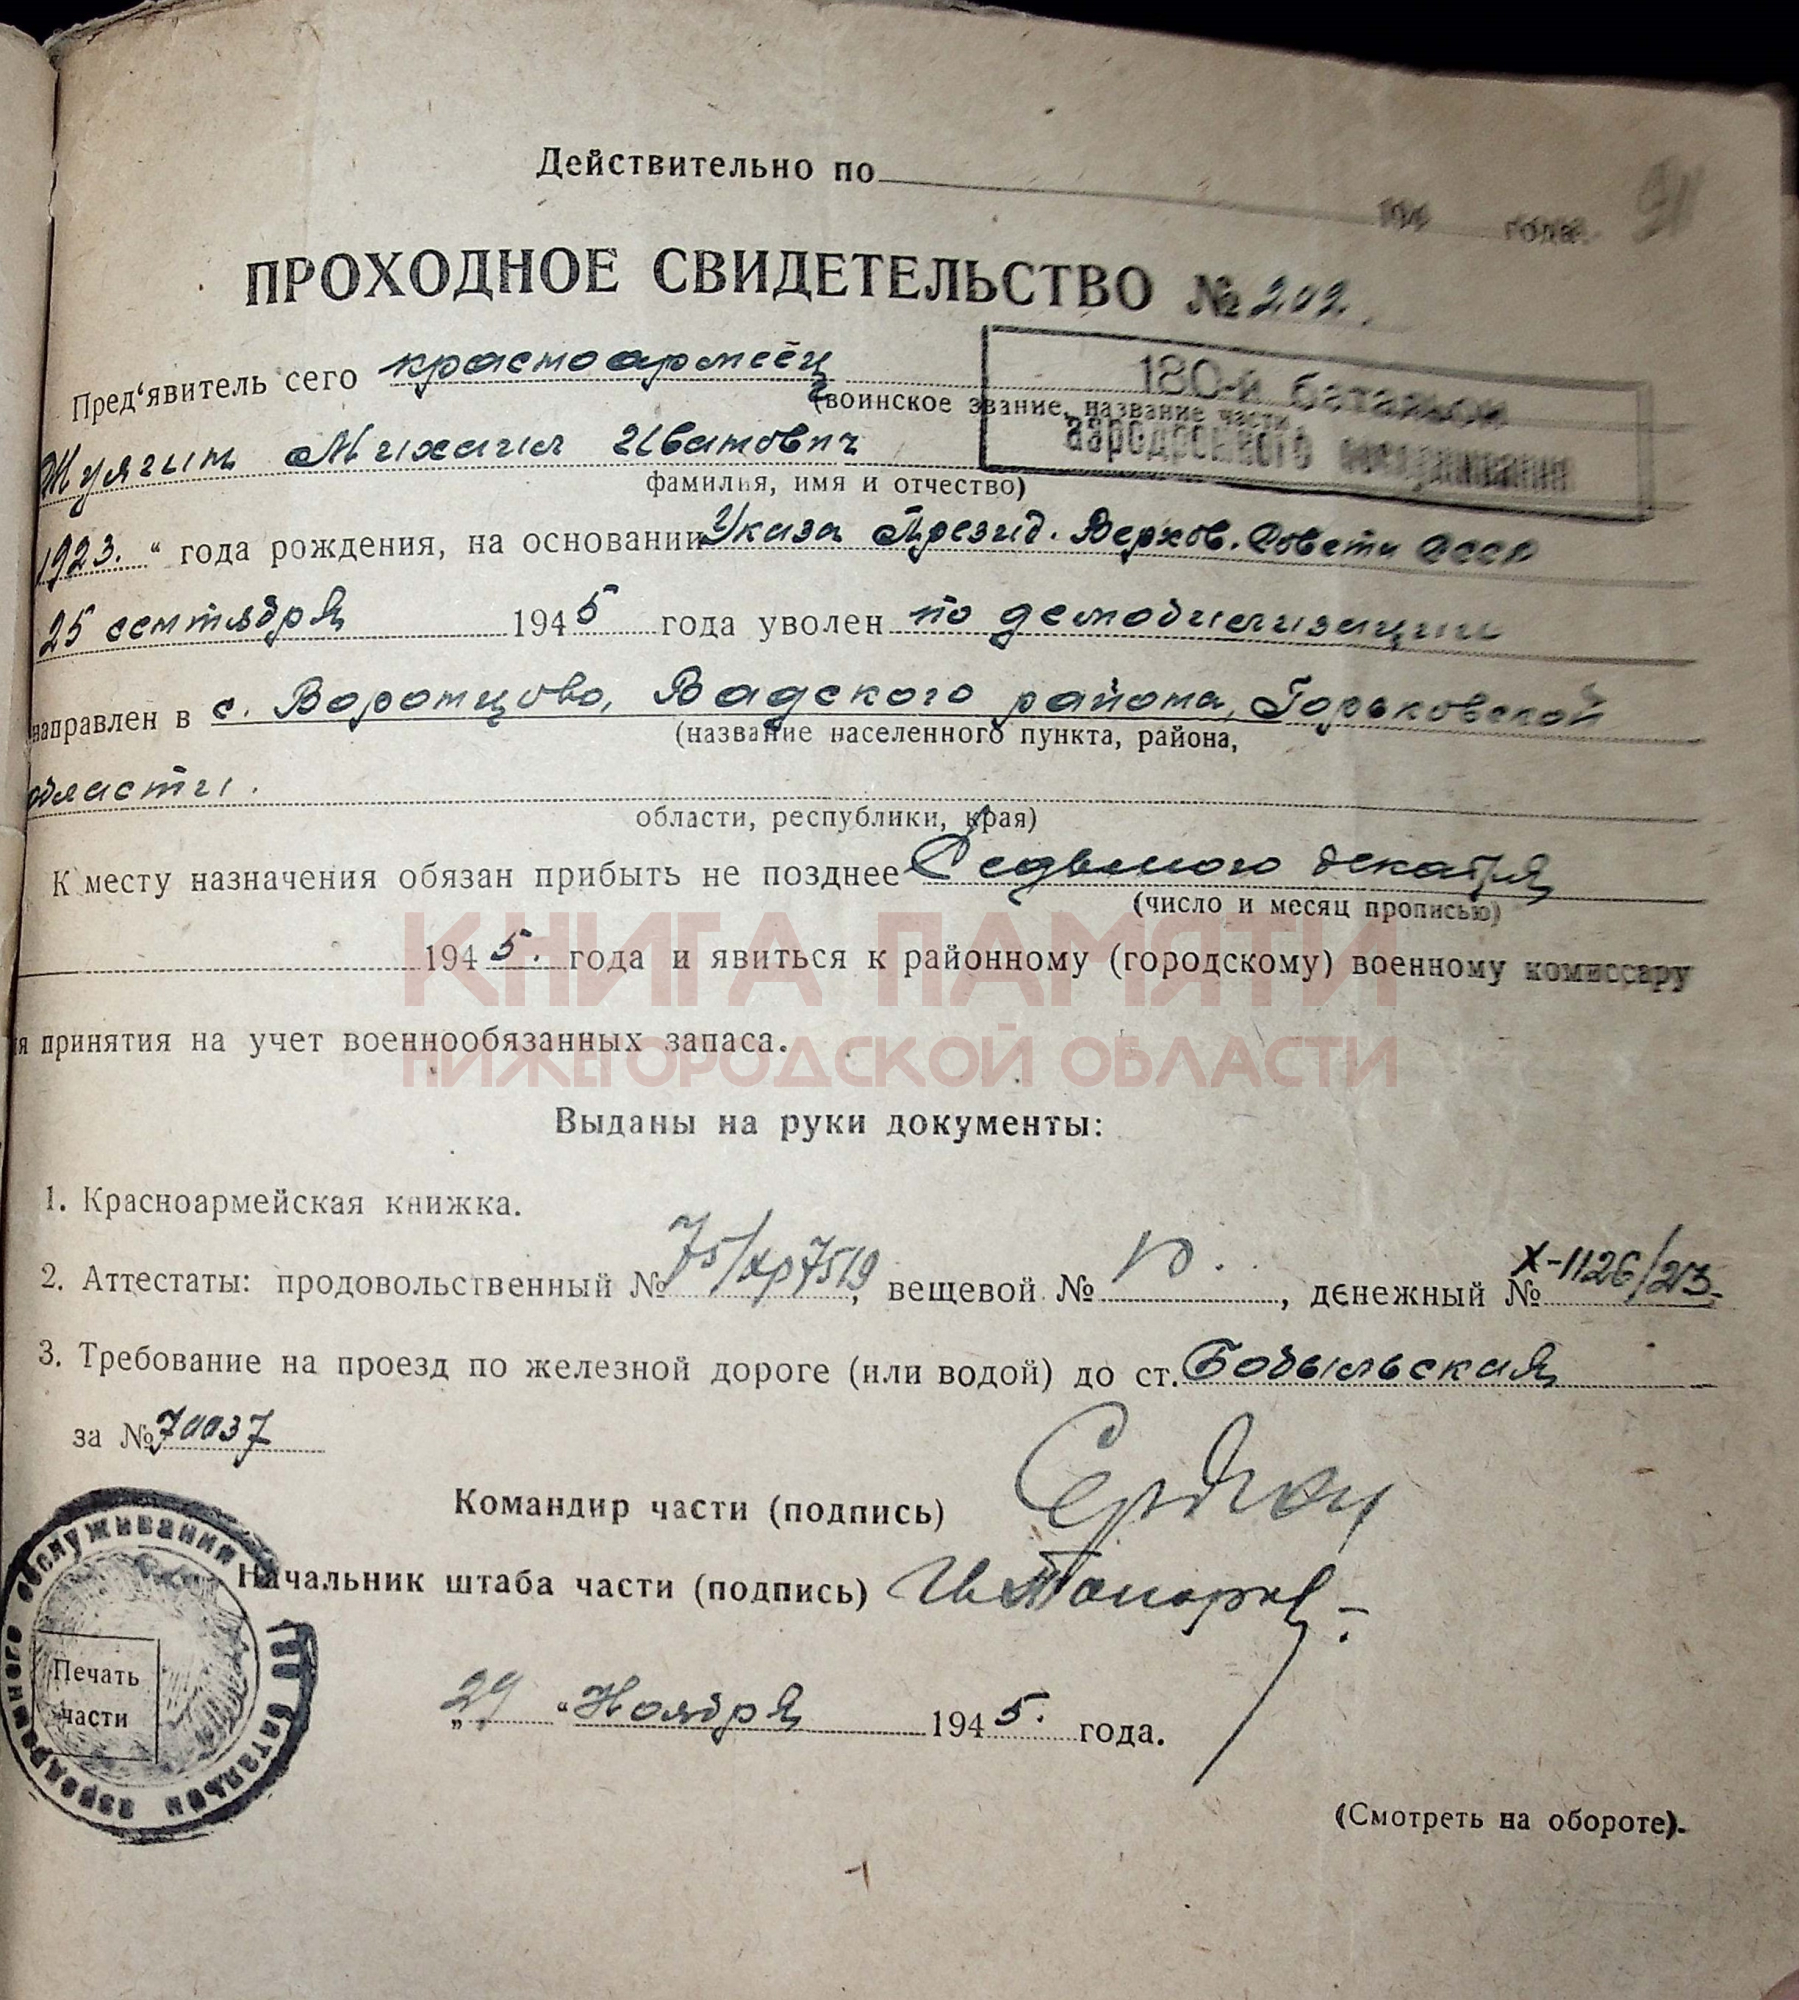 Действительно по 194 года. 91
ПРОХОДНОЕ СВИДЕТЕЛЬСТВО № 202.
180-й батальон
аэродромного обслуживания
Пред‘явитель сего красноармеец
(воинское звание, название части
Жулягин Михаил Иванович
фамилья, имя и отчество)
1923. “ года рождения, на основании Указа Презид. Верхов. Совета СССР
25 сентября 1945 года уволен по демобилизации
направлен в с. Воронцово, Вадского района, Горьковской
(название населенного пункта, района,
области.
области, республики, края)
К месту назначения обязан прибыть не позднее Седьмого декабря
(число и месяц прописью)
1945. года и явиться к районному (городскому) военному комиссару
КНИГА ПАМЯТИ
я принятия на учет военнообязанных запаса.
НИЖЕГОРОДСКОЙ ОБЛАСТИ
Выданы на руки документы:
1. Красноармейская книжка.
2. Аттестаты: продовольственный № 75/хр7519, вещевой № , денежный № х-1126/213.
3. Требование на проезд по железной дороге (или водой) до ст. Бобыльская
за № 70037
Командир части (подпись)
Начальник штаба части (подпись)
батальон аэродромного обслуживания
Печать
части
„29“ Ноября 1945. года.
(Смотреть на обороте).